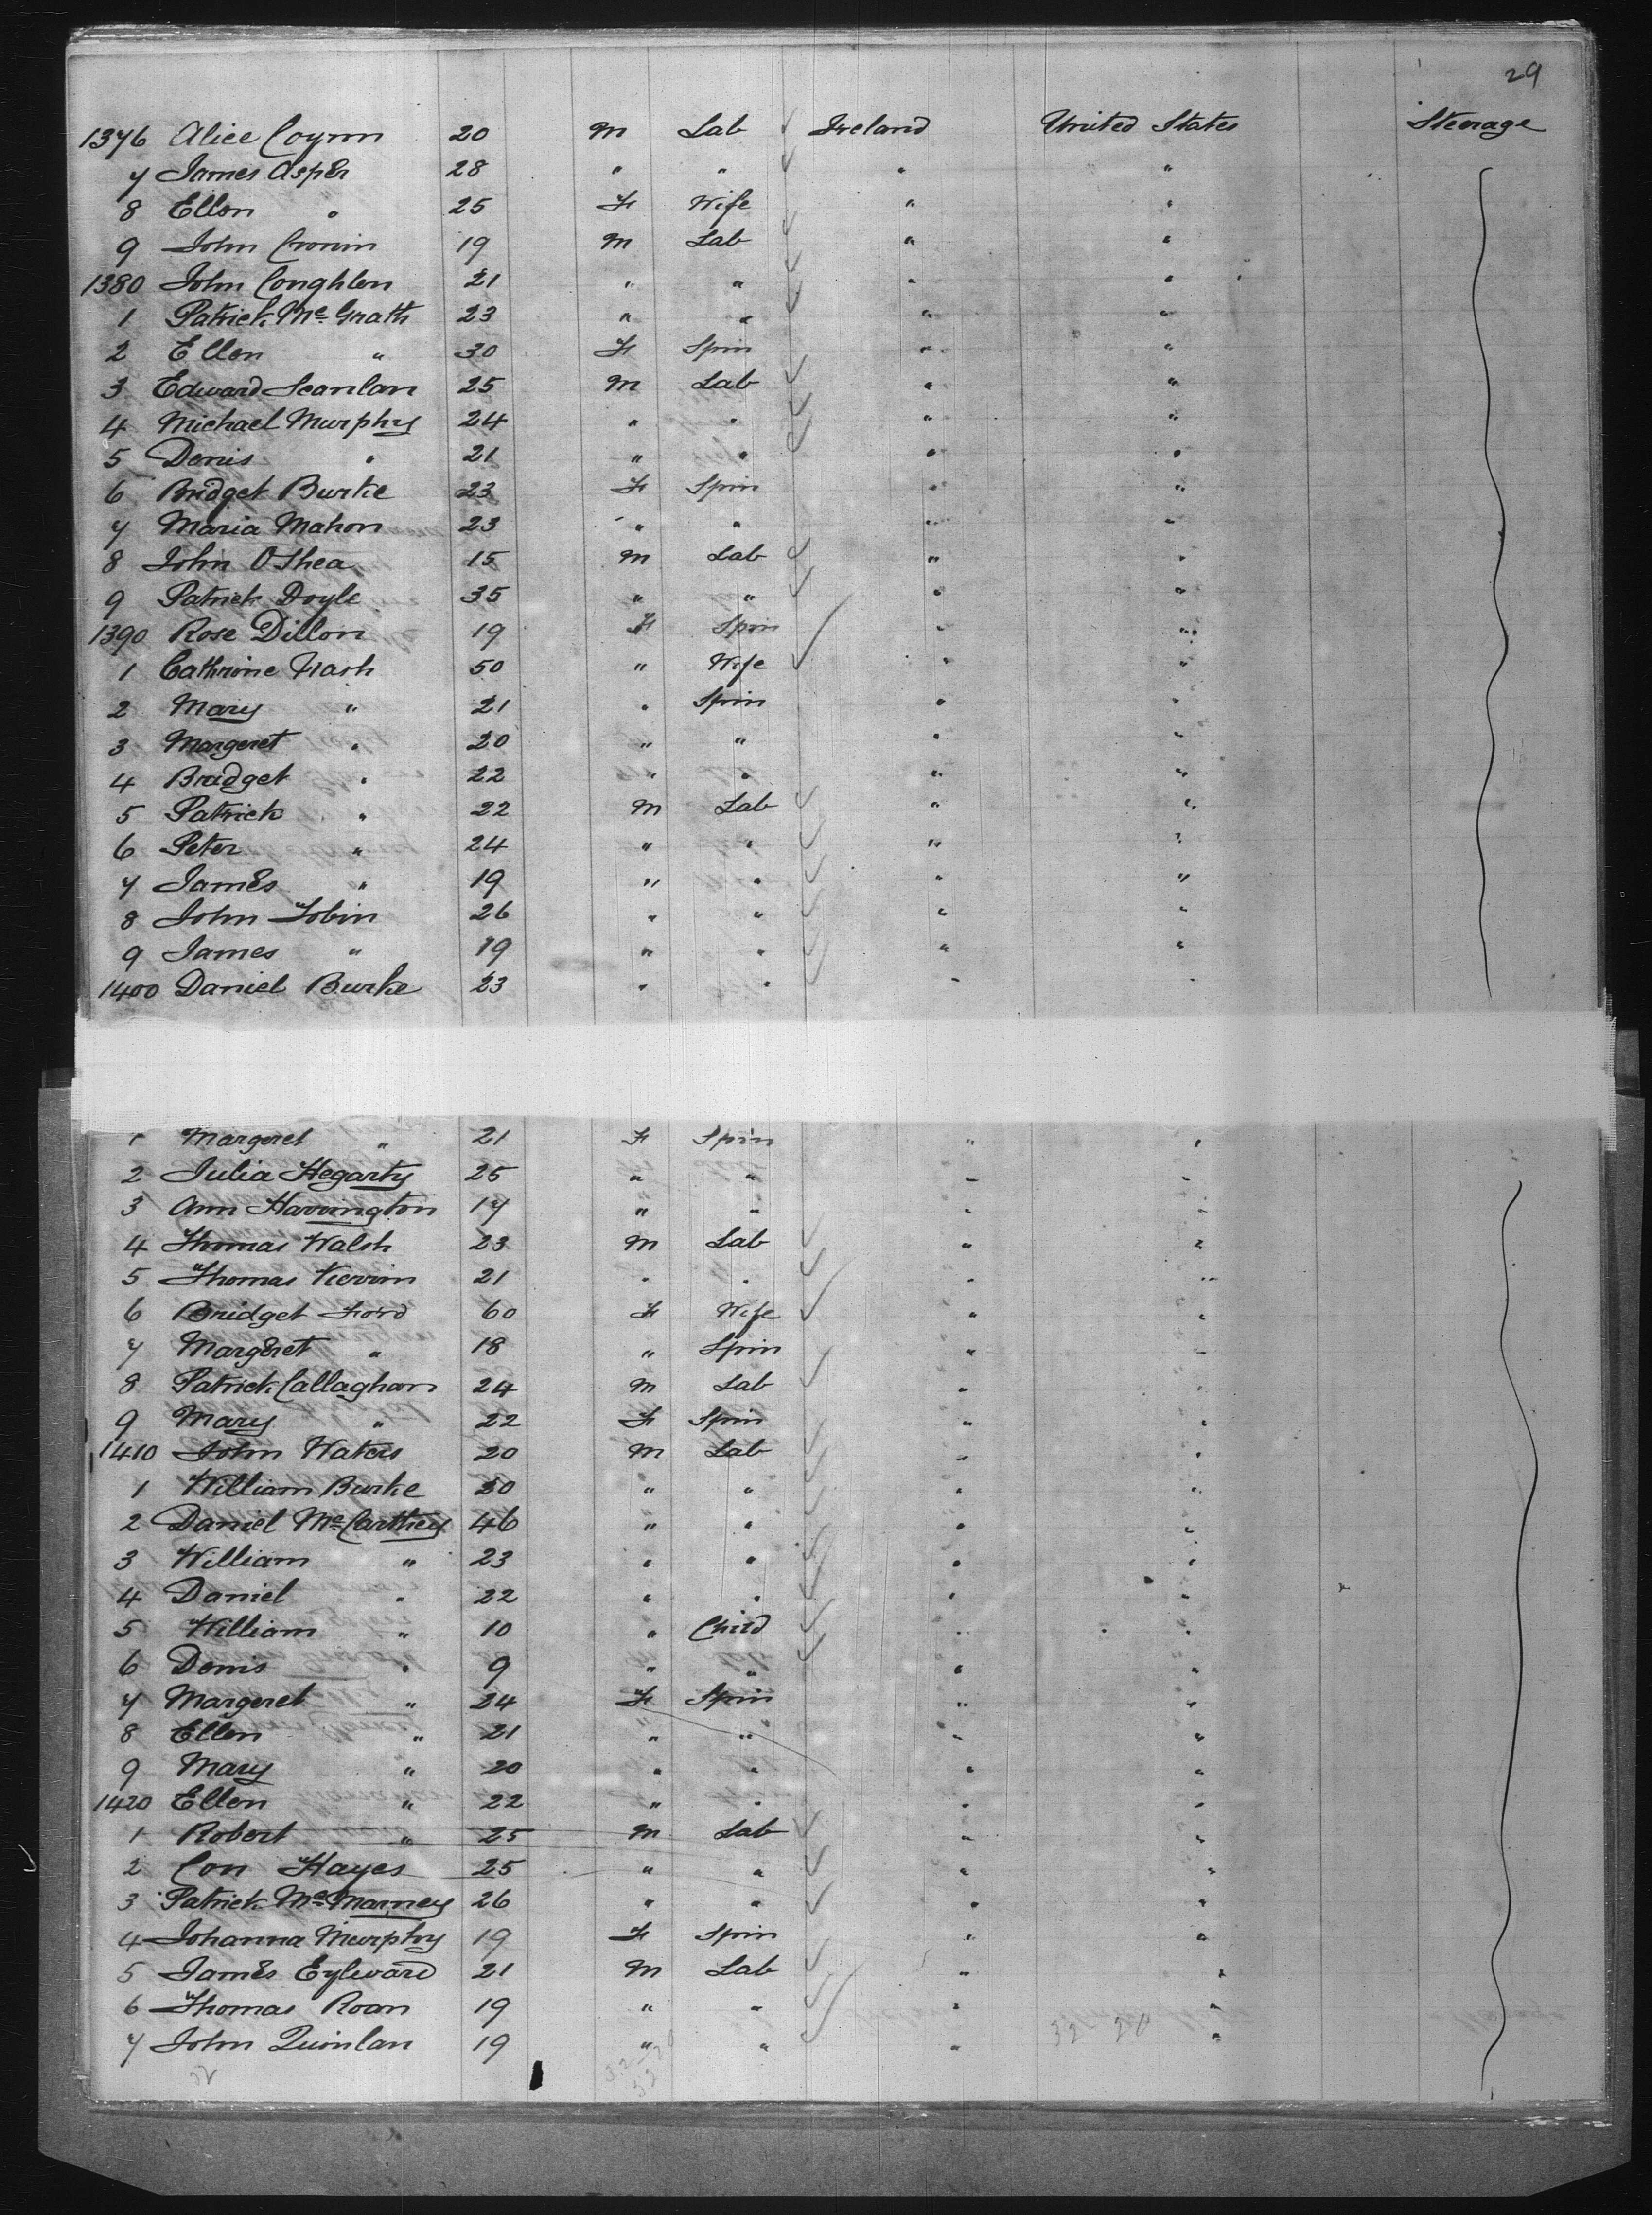 29
1376 Alice Coynn 20 M Lab Ireland United States Steerage
7 James Asper 28 " " " "
8 Ellen " 25 F Wife " "
9 John Cronin 19 M Lab " "
1380 John Coughlen 21 " " " "
1 Patrick Mc Grath 23 " " " "
2 Ellen " 30 F Spin " "
3 Edward Scanlan 25 M Lab " "
4 Michael Murphy 24 " " " "
5 Denis " 21 " " " "
6 Bridget Burke 23 F Spin " "
7 Maria Mahon 23 " " " "
8 John O Shea 15 M Lab " "
9 Patrick Doyle 35 " " " "
1390 Rose Dillon 19 F Spin " "
1 Cathrine Nash 50 " Wife " "
2 Mary " 21 " Spin " "
3 Margeret " 20 " " " "
4 Bridget " 22 " " " "
5 Patrick " 22 M Lab " "
6 Peter " 24 " " " "
7 James " 19 " " " "
8 John Tobin 26 " " " "
9 James " 19 " " " "
1400 Daniel Burke 23 " " " "
1 Margeret " 21 F Spin " "
2 Julia Hegarty 25 " " " "
3 Ann Harrington 17 " " " "
4 Thomas Walsh 23 M Lab " "
5 Thomas Kervin 21 " " " "
6 Bridget Ford 60 F Wife " "
7 Margeret " 18 " Spin " "
8 Patrick Callaghan 24 M Lab " "
9 Mary " 22 F Spin " "
1410 John Waters 20 M Lab " "
1 William Burke 20 " " " "
2 Daniel Mc Carthey 46 " " " "
3 William " 23 " " " "
4 Daniel " 22 " " " "
5 William " 10 " Child " "
6 Denis " 9 " " " "
7 Margeret " 24 F Spin " "
8 Ellen " 21 " " " "
9 Mary " 20 " " " "
1420 Ellen " 22 " " " "
1 Robert " 25 M Lab " "
2 Con Hayes 25 " " " "
3 Patrick Mc Mamey 26 " " " "
4 Johanna Murphy 19 F Spin " "
5 James Eyleward 21 M Lab " "
6 Thomas Roan 19 " " " "
7 John Quinlan 19 " " " "
32 20